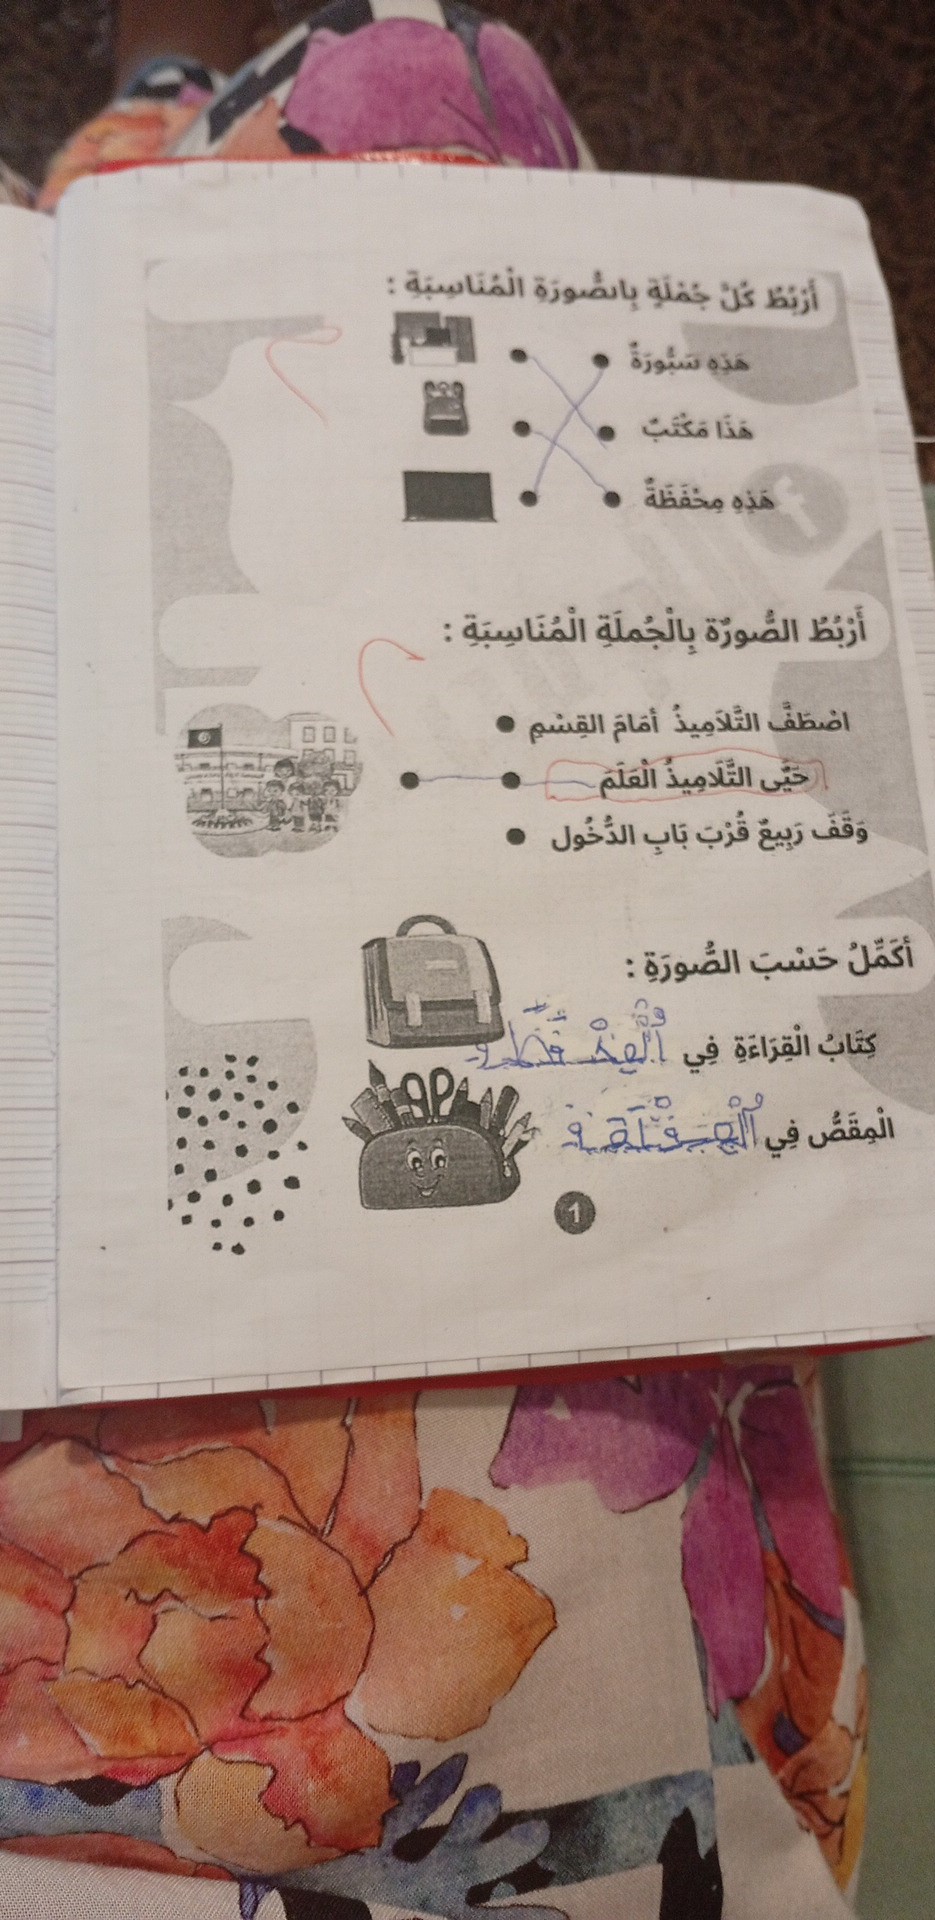 أَرْبُطُ كُلَّ جُمْلَةٍ بِالصُّورَةِ الْمُنَاسِبَةِ :
هَذِهِ سَبُّورَةٌ
هَذَا مَكْتَبٌ
هَذِهِ مِحْفَظَةٌ
أَرْبُطُ الصُّورَة بِالْجُملَةِ الْمُنَاسِبَةِ :
اصْطَفَّ التَّلاَمِيذُ أمَامَ القِسْمِ
حَيَّى التَّلَامِيذُ الْعَلَمَ
وَقَفَ رَبِيعٌ قُرْبَ بَابِ الدُّخُول
أكَمِّلُ حَسْبَ الصُّورَةِ :
كِتَابُ الْقِرَاءَةِ فِي
الْمِقَصُّ فِي
1